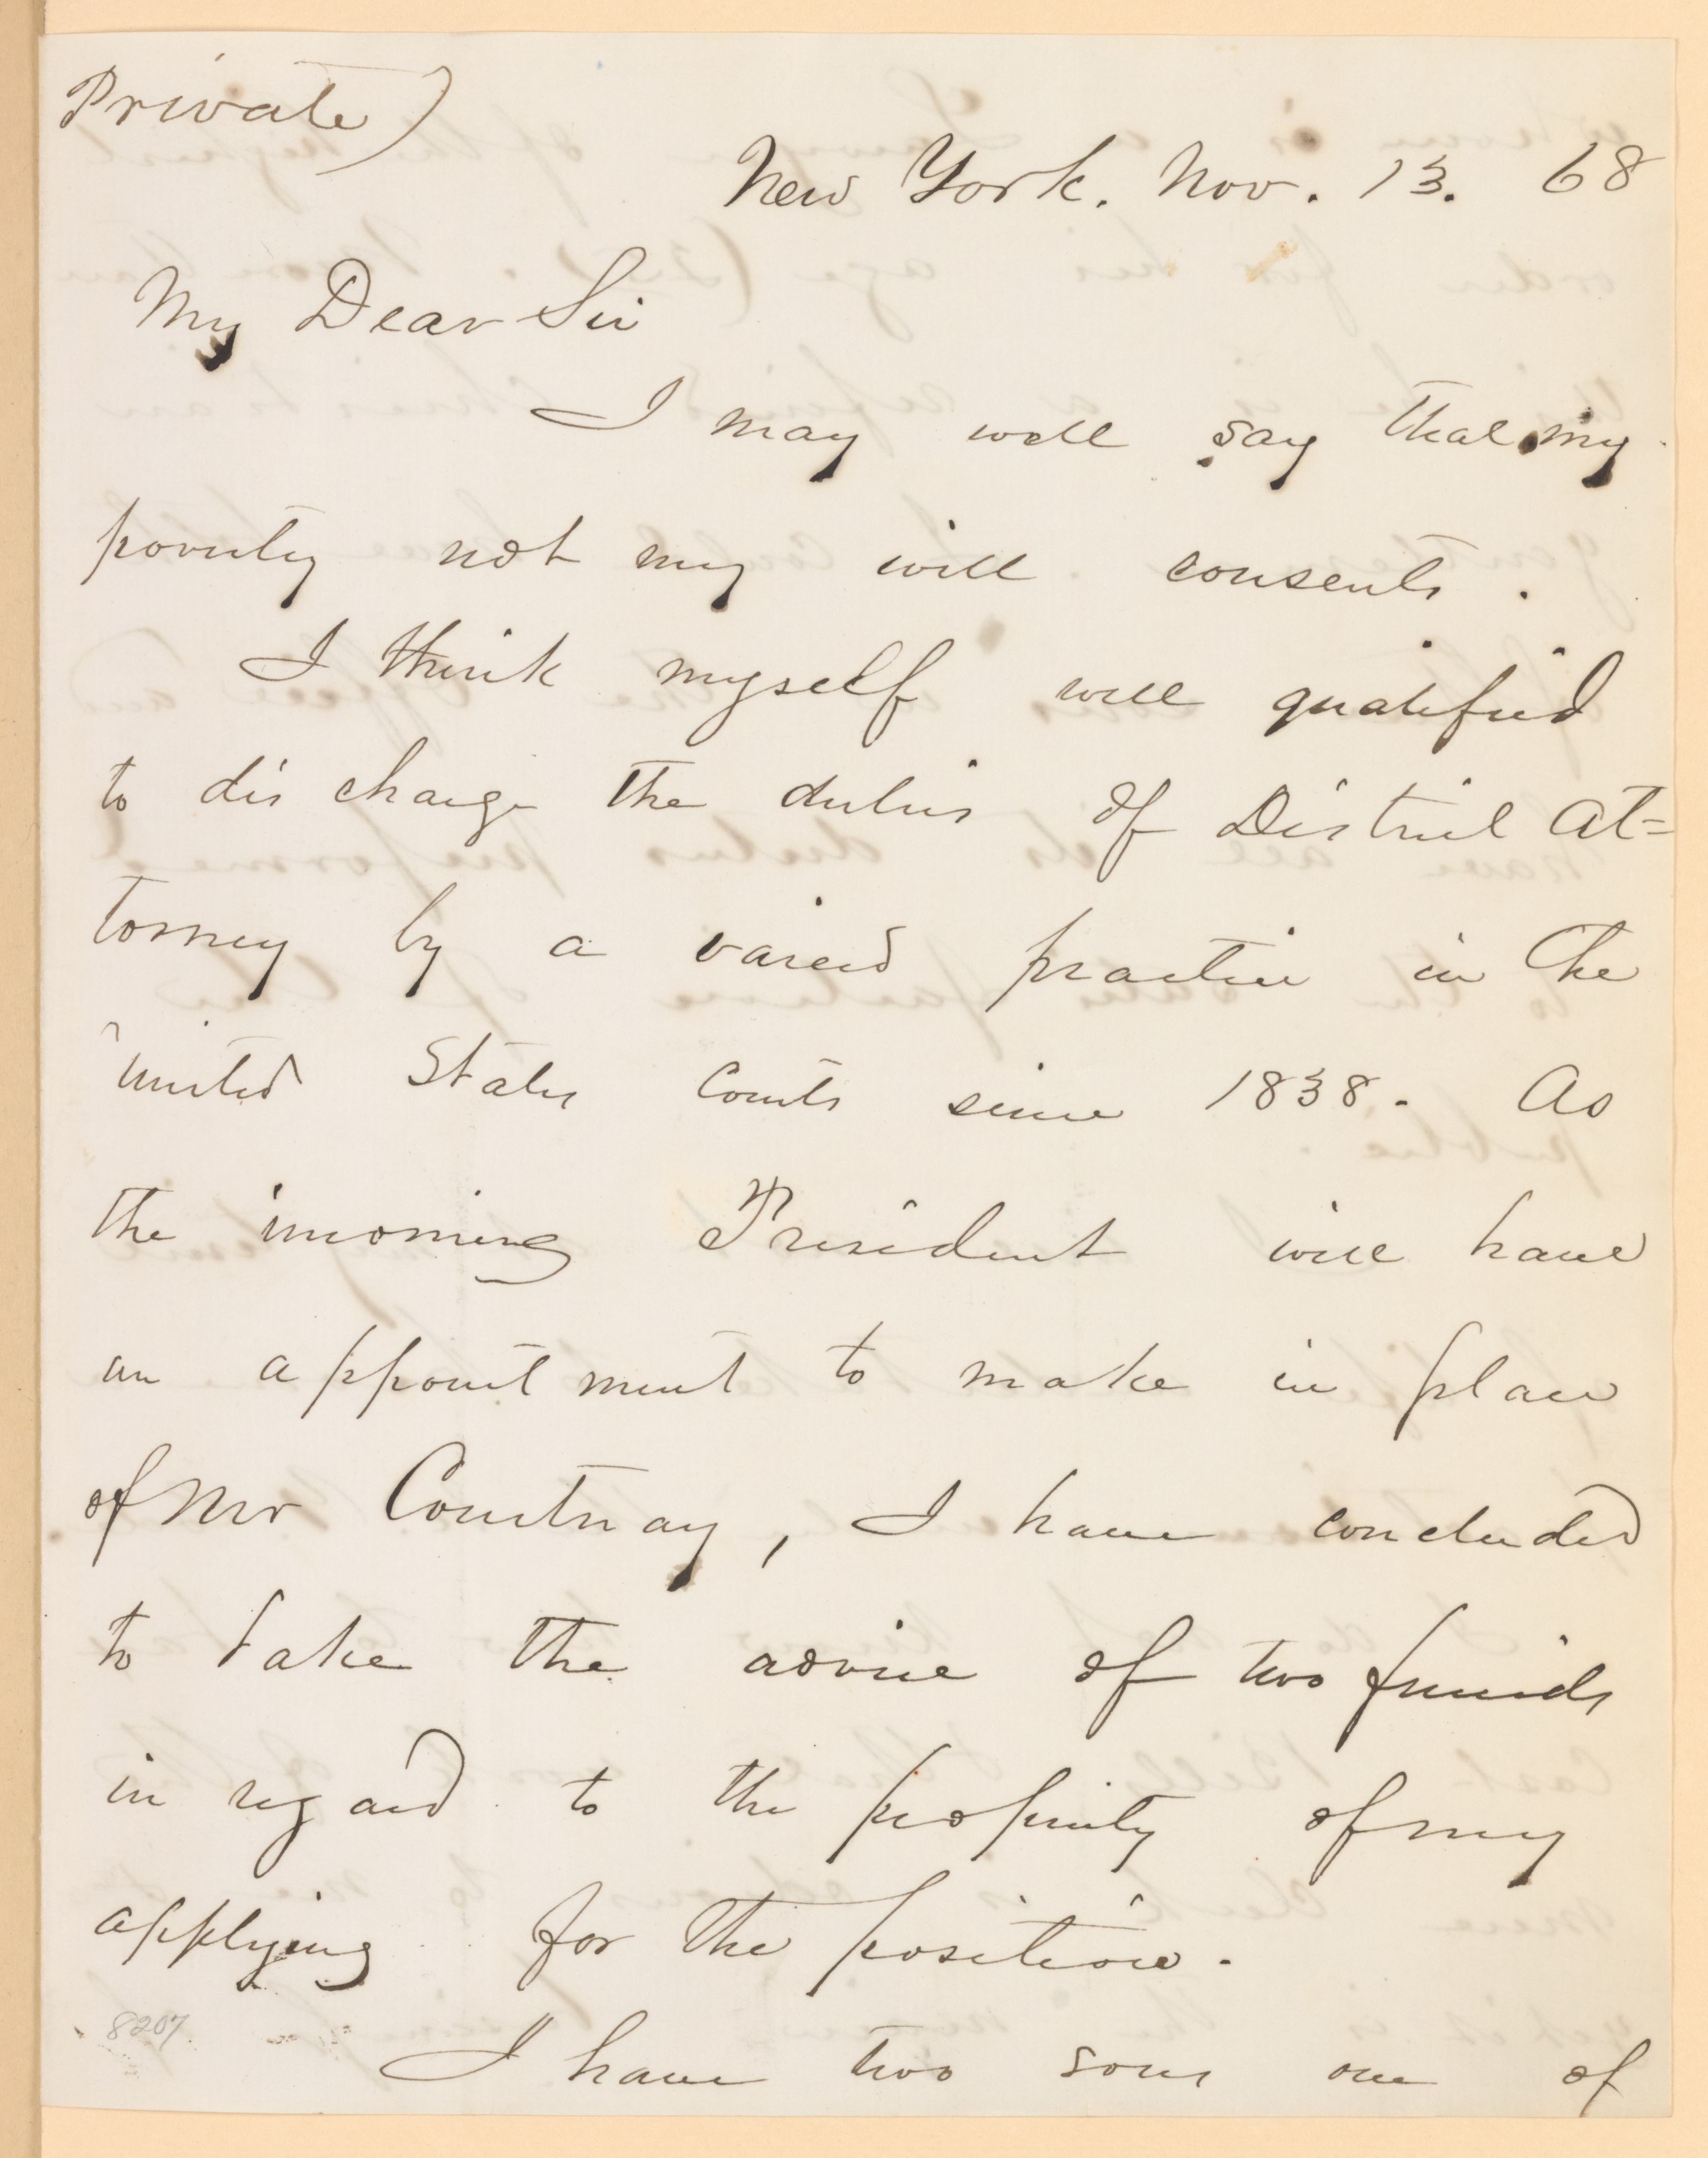 Private)
New York. Nov. 13. 68
My Dear Sir
I may well say that my
poverty not my will consents.
I think myself well qualified
to discharge the duties of District At=
torney by a varied practice in the
United States Courts since 1838. As
the incoming President will have
an appointment to make in place
of Mr Courtnay, I have concluded
to take the advice of two friends
in regard to the propriety of my
applying for the position.
8207
I have two sons one of